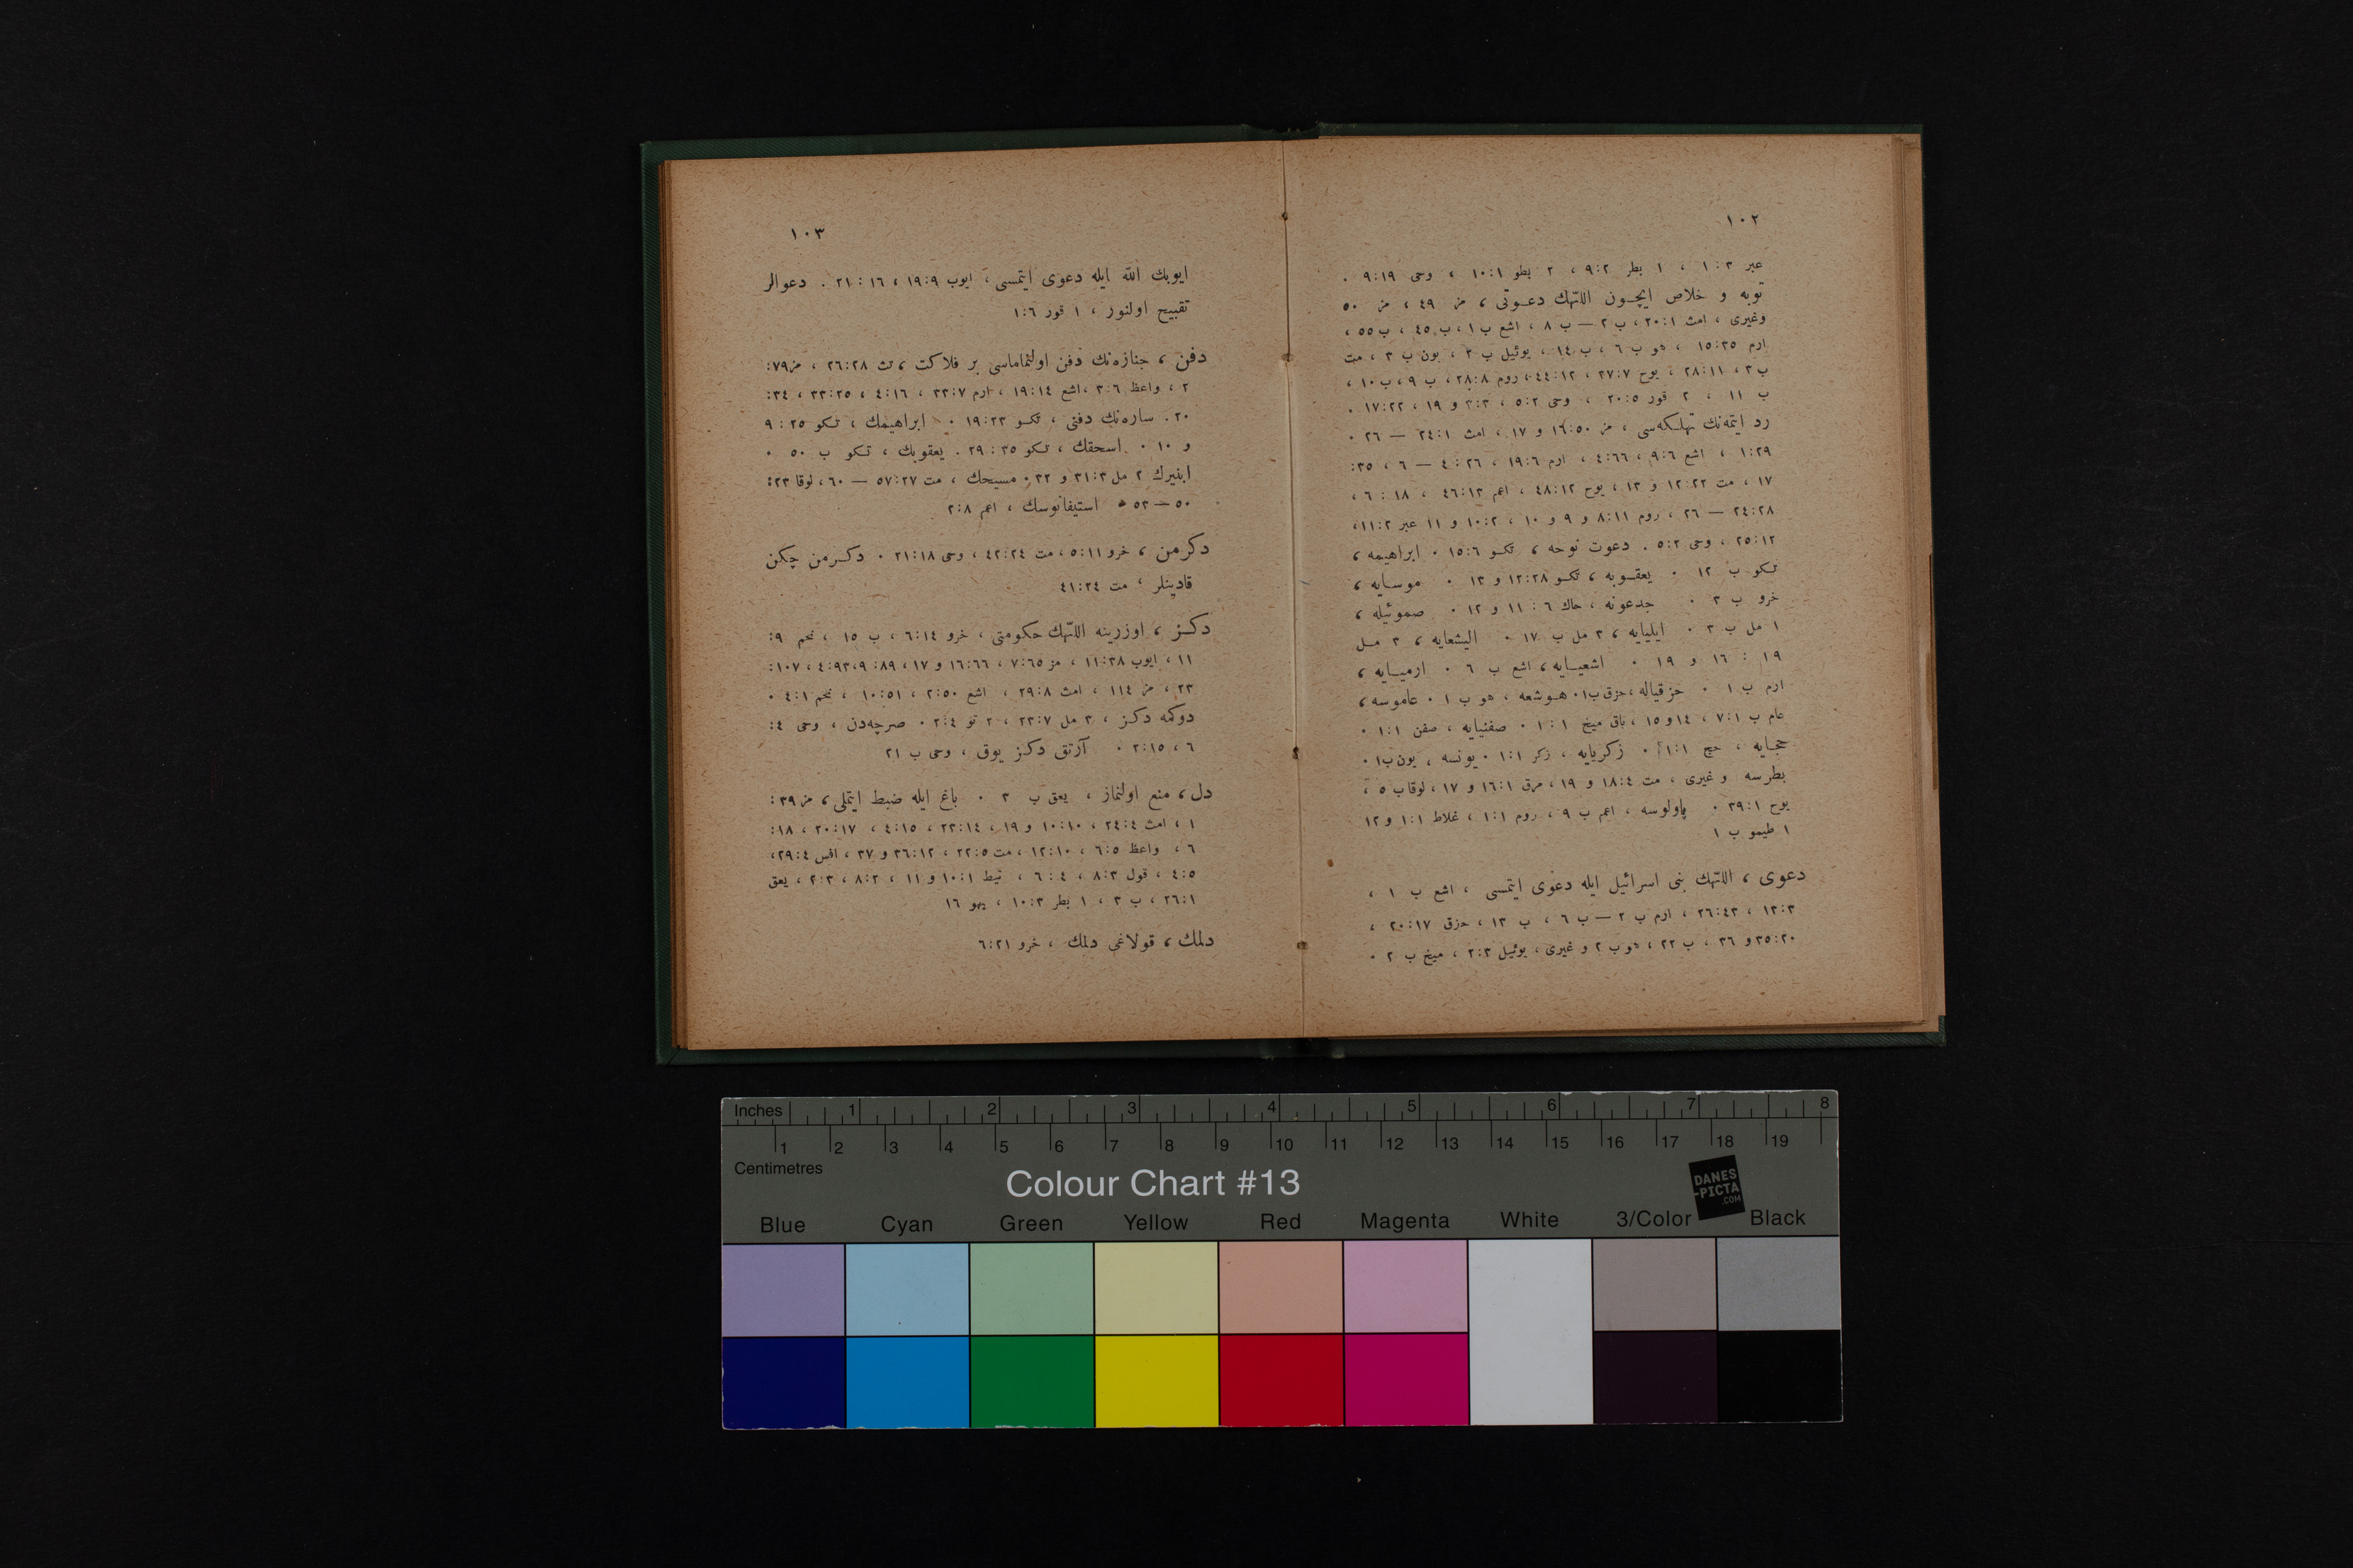 ١٠٢
عبر ٣:١ ، ١ بطر ٩:٢ ، ٢ بطر ١٠:١ ، وحى ٩:١٩ ·
توبه و خلاص ایچـون اللّٰهك دعـوتى ، مز ٤٩ ، مز ٥٠
وغيرى ، امث ٢٠:١ ، ب ٢ — ب ٨ ، اشع ب ١ ، ب ٤٥ ، ب ٥٥ ،
ارم ١٥:٣٥ ، هو ب ٦ ، ب ١٤ ، يوئيل ب ٢ ، يون ب ٣ ، مت
ب ٣ ، ٢٨:١١ ، يوح ٣٧:٧ ، ٤٤:١٢ ، روم ٢٨:٨ ، ب ٩ ، ب ١٠ ،
ب ١١ ، ٢ قور ٢٠:٥ ، وحى ٥:٢ ، ٣:٣ و ١٩ ، ١٧:٢٢ ·
رد ايتمه‌نك تهلـكه‌سى ، مز ١٦:٥٠ و ١٧ ، امث ٢٤:١ — ٢٦ ·
١:٢٩ ، اشع ٩:٦ ، ٤:٦٦ ، ارم ١٩:٦ ، ٤:٢٦ — ٦ ، ٣٥:
١٧ ، مت ١٢:٢٢ و ١٣ ، يوح ٤٨:١٢ ، اعم ٤٦:١٣ ، ١٨ : ٦ ،
٢٤:٢٨ — ٢٦ ، روم ٨:١١ و ٩ و ١٠ ، ١٠:٢ و ١١ عبر ١١:٢ ،
٢٥:١٢ ، وحى ٥:٢ . دعوت نوحه ، تكـو ١٥:٦ · ابراهيمه ،
تـكو ب ١٢ · يعقـوبه ، تكـو ١٢:٢٨ و ١٣ · موسـايه ،
خرو ب ٣ · جدعونه ، حاك ٦ : ١١ و ١٢ · صموئيله ،
١ مل ب ٣ · ايليايه ، ٣ مل ب ١٧ · اليشعايه ، ٣ مـل
١٩ : ١٦ و ١٩ · اشعيـايه ، اشع ب ٦ · ارميـايه ،
ارم ب ١ · حزقياله ، حزق ب ١ · هـوشعه ، هو ب ١ · عاموسه ،
عام ب ٧:١ ، ١٤ و ١٥ ، باق ميخ ١ : ١ · صفنيايه ، صفن ١:١ ·
حجـايه ، حج ١:١ · زكريايه ، زكر ١:١ · يونسه ، يون ب ١ ·
بطرسه و غيرى ، مت ١٨:٤ و ١٩ ، مرق ١٦:١ و ١٧ ، لوقا ب ٥ ،
يوح ٣٩:١ · پاولوسه ، اعم ب ٩ ، روم ١:١ ، غلاط ١:١ و ١٢
١ طيمو ب ١
دعوى ، اللّٰهك بنى اسرائيل ايله دعوى ايتمسى ، اشع ب ١ ،
١٣:٣ ، ٢٦:٤٣ ، ارم ب ٢ — ب ٦ ، ب ١٣ ، حزق ٢٠:١٧ ،
٣٥:٢٠ و ٣٦ ، ب ٢٢ ، هو ب ٢ و غيرى ، يوئيل ٢:٣ ، ميخ ب ٢ ·
١٠٣
ايوبك اللّٰه ايله دعوى ايتمسى ، ايوب ١٩:٩ ، ١٦ : ٢١ . دعوالر
تقبيح اولنور ، ١ قور ١:٦
دفن ، جنازه‌نك دفن اولنماماسى بر فلاكت ، تث ٢٦:٢٨ ، مز ٧٩:
٢ ، واعظ ٣:٦ ، اشع ١٩:١٤ ، ارم ٣٣:٧ ، ٤:١٦ ، ٣٣:٢٥ ، ٣٤:
٢٠ . ساره‌نك دفنى ، تكـو ١٩:٢٣ · ابراهيمك ، تـكو ٢٥ : ٩
و ١٠ · اسحقك ، تـكو ٣٥ : ٢٩ . يعقوبك ، تـكو ب ٥٠ ·
ابنيرك ٢ مل ٣١:٣ و ٣٢ · مسيحك ، مت ٥٧:٢٧ — ٦٠ ، لوقا ٢٣:
٥٠ — ٥٣ · استيفانوسك ، اعم ٢:٨
دكرمن ، خرو ٥:١١ ، مت ٤٢:٢٤ ، وحى ٢١:١٨ · دكـرمن چكن
قادينلر ، مت ٤١:٢٤
دكـز ، اوزرينه اللّٰهك حكومتى ، خرو ٦:١٤ ، ب ١٥ ، نحم ٩:
١١ ، ايوب ١١:٣٨ ، مز ٧:٦٥ ، ١٦:٦٦ و ١٧ ، ٨٩:٩ ، ٤:٩٣ ، ١٠٧:
٢٣ ، مز ١١٤ ، امث ٢٩:٨ ، اشع ٢:٥٠ ، ١٠:٥١ ، نحم ٤:١ ·
دوكمه دكـز ، ٣ مل ٢٣:٧ ، ٢ تو ٢:٤ · صرچه‌دن ، وحى ٤:
٦ ، ٢:١٥ · آرتق دكـز يوق ، وحى ب ٢١
دل ، منع اولنماز ، يعق ب ٣ · باغ ايله ضبط ايتملى ، مز ٣٩:
١ ، امث ٢٤:٤ ، ١٠:١٠ و ١٩ ، ٢٣:١٤ ، ٤:١٥ ، ٢٠:١٧ ، ١٨:
٦ ، واعظ ٦:٥ ، ١٢:١٠ ، مت ٢٢:٥ ، ٣٦:١٢ و ٣٧ ، افس ٢٩:٤ ،
٤:٥ ، قول ٨:٣ ، ٤ : ٦ ، تيط ١٠:١ و ١١ ، ٨:٢ ، ٢:٣ ، يعق
٢٦:١ ، ب ٣ ، ١ بطر ١٠:٣ ، يهو ١٦
دلمك ، قولاغى دلمك ، خرو ٦:٢١
Inches 1 2 3 4 5 6 7 8
1 2 3 4 5 6 7 8 9 10 11 12 13 14 15 16 17 18 19
Centimetres
Colour Chart #13
DANES
-PICTA
.COM
Blue Cyan Green Yellow Red Magenta White 3/Color Black